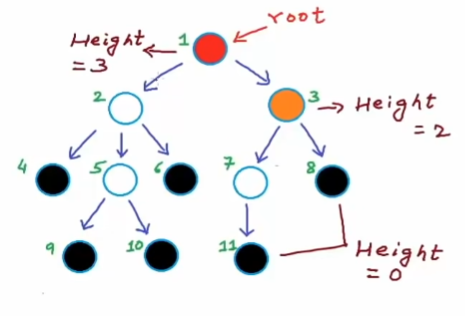 root
Height
= 3
1
2
3
Height
= 2
4
5
6
7
8
9
10
11
Height
= 0